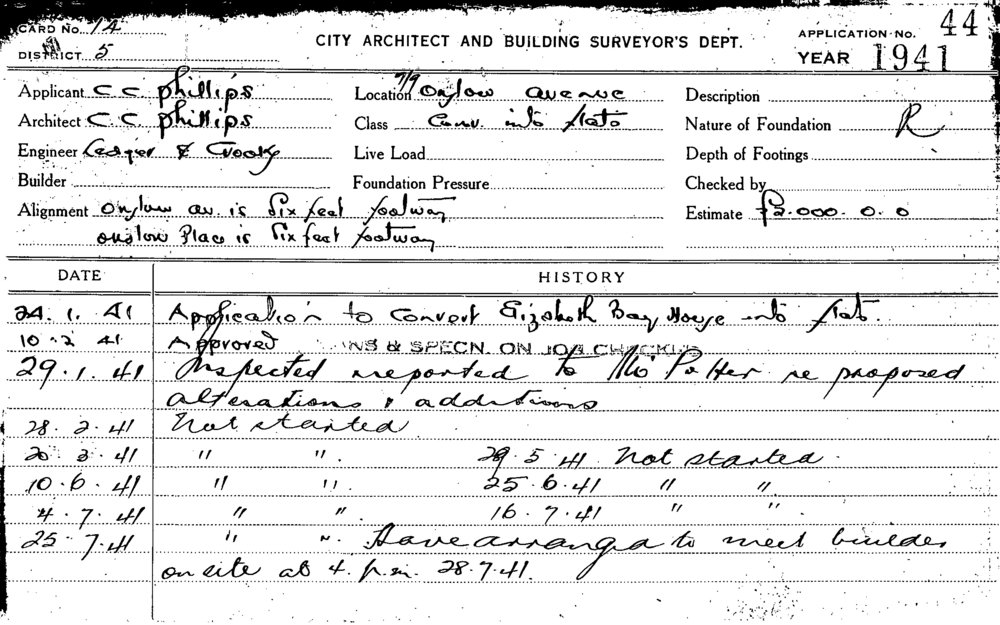 CARD No. 14
DISTRICT 5
CITY ARCHITECT AND BUILDING SURVEYOR'S DEPT.
APPLICATION No. 44
YEAR 1941
Applicant C C Phillips Location 7/9 Onslow avenue Description
Architect C C Phillips Class Conv. into flats Nature of Foundation R
Engineer Live Load Depth of Footings
Builder Foundation Pressure Checked by
Alignment Onslow av. is Six feet footway Estimate £2.000. 0. 0
Onslow Place is Six feet footway
DATE HISTORY
24. 1. 41 Application to convert Elizabeth Bay House into flats.
10 - 2 41 Approved & SPECN. ON JOB
29. 1. 41 Inspected reported to Mr Potter re proposed
alterations & additions
28. 2. 41 Not started
20. 3. 41 " " 29. 5 41 Not started
10. 6. 41 " " 25. 6. 41 " "
4. 7. 41 " " 16. 7. 41 " "
25. 7. 41 " " Have arranged to meet builder
on site at 4. p.m. 28.7.41.